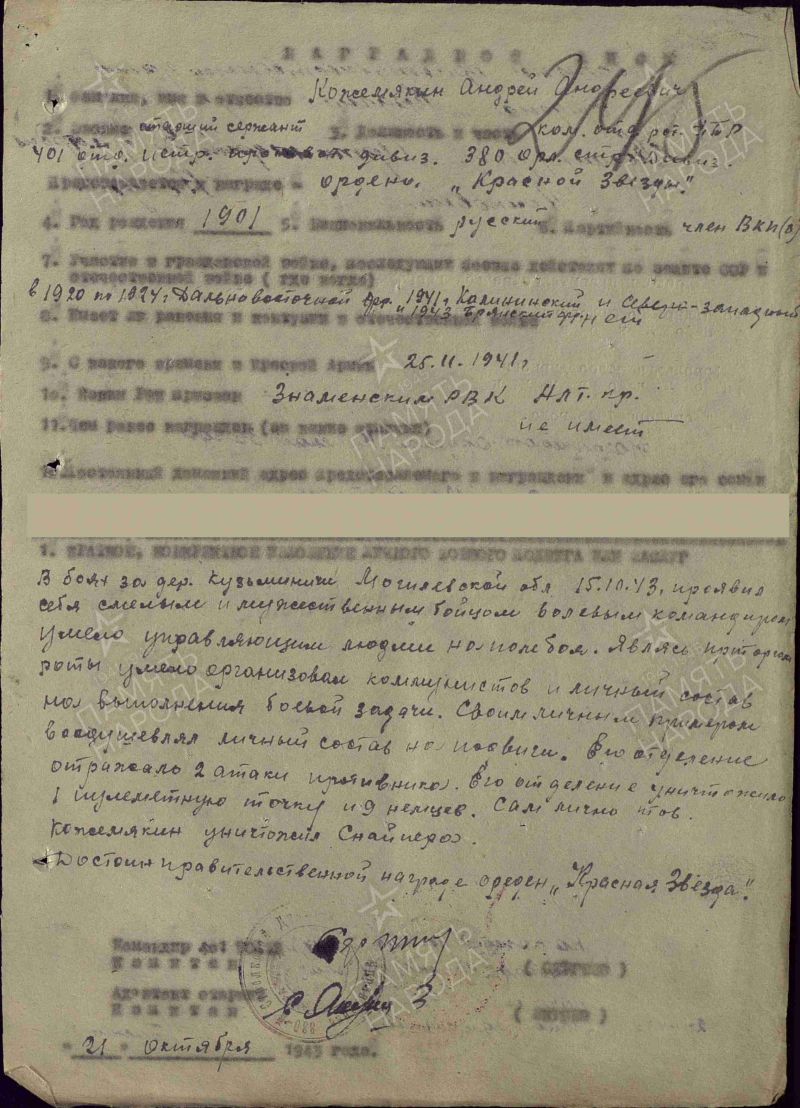 НАГРАДНОЙ ЛИСТ
1. Фамилия, имя и отчество Кожемякин Андрей Андреевич
2. Звание старший сержант 3. Должность и часть ком. отд. рот. ПТР
401 отд. истр. дивиз. 380 орл. стр. дивиз.
Представляется к награде - ордена „Красной Звезды"
4. Год рождения 1901 5. Национальность русский 6. Партийность член ВКП(б)
7. Участие в гражданской войне, последующих боевых действиях по защите СССР и
отечественной войне (где когда)
в 1920 по 1924 г Дальновосточной фр. 1941 г Калининский и Северо-западный
и 1943 Брянский фр.
8. Имеет ли ранения и контузии в отечественной войне нет
9. С какого времени в Красной Армии 25.11.1941 г
10. Каким РВК призван Знаменским РВК Алт. кр.
11. Чем ранее награжден (за какие отличия) не имеет
12. Постоянный домашний адрес представляемого к награждению и адрес его семьи
1. КРАТКОЕ, КОНКРЕТНОЕ ИЗЛОЖЕНИЕ ЛИЧНОГО БОЕВОГО ПОДВИГА ИЛИ ЗАСЛУГ
В боях за дер. Кузьминичи Могилевской обл 15.10.43. проявил
себя смелым и мужественным бойцом волевым командиром
умело управляющим людми на поле боя. Являясь парторгом
роты умело организовал коммунистов и личный состав
на выполнения боевой задачи. Своим личным примером
воодушевлял личный состав на подвиги. Его отделение
отражало 2 атаки противника. Его отделение уничтожило
1 пулеметную точку и 9 немцев. Сам лично тов.
Кожемякин уничтожил Снайпера.
Достоин правительственной награде орден „Красная Звезда".
Командир
Капитан
Адъютант старший
Капитан
"21" октября 1943 года.
ПАМЯТЬ НАРОДА